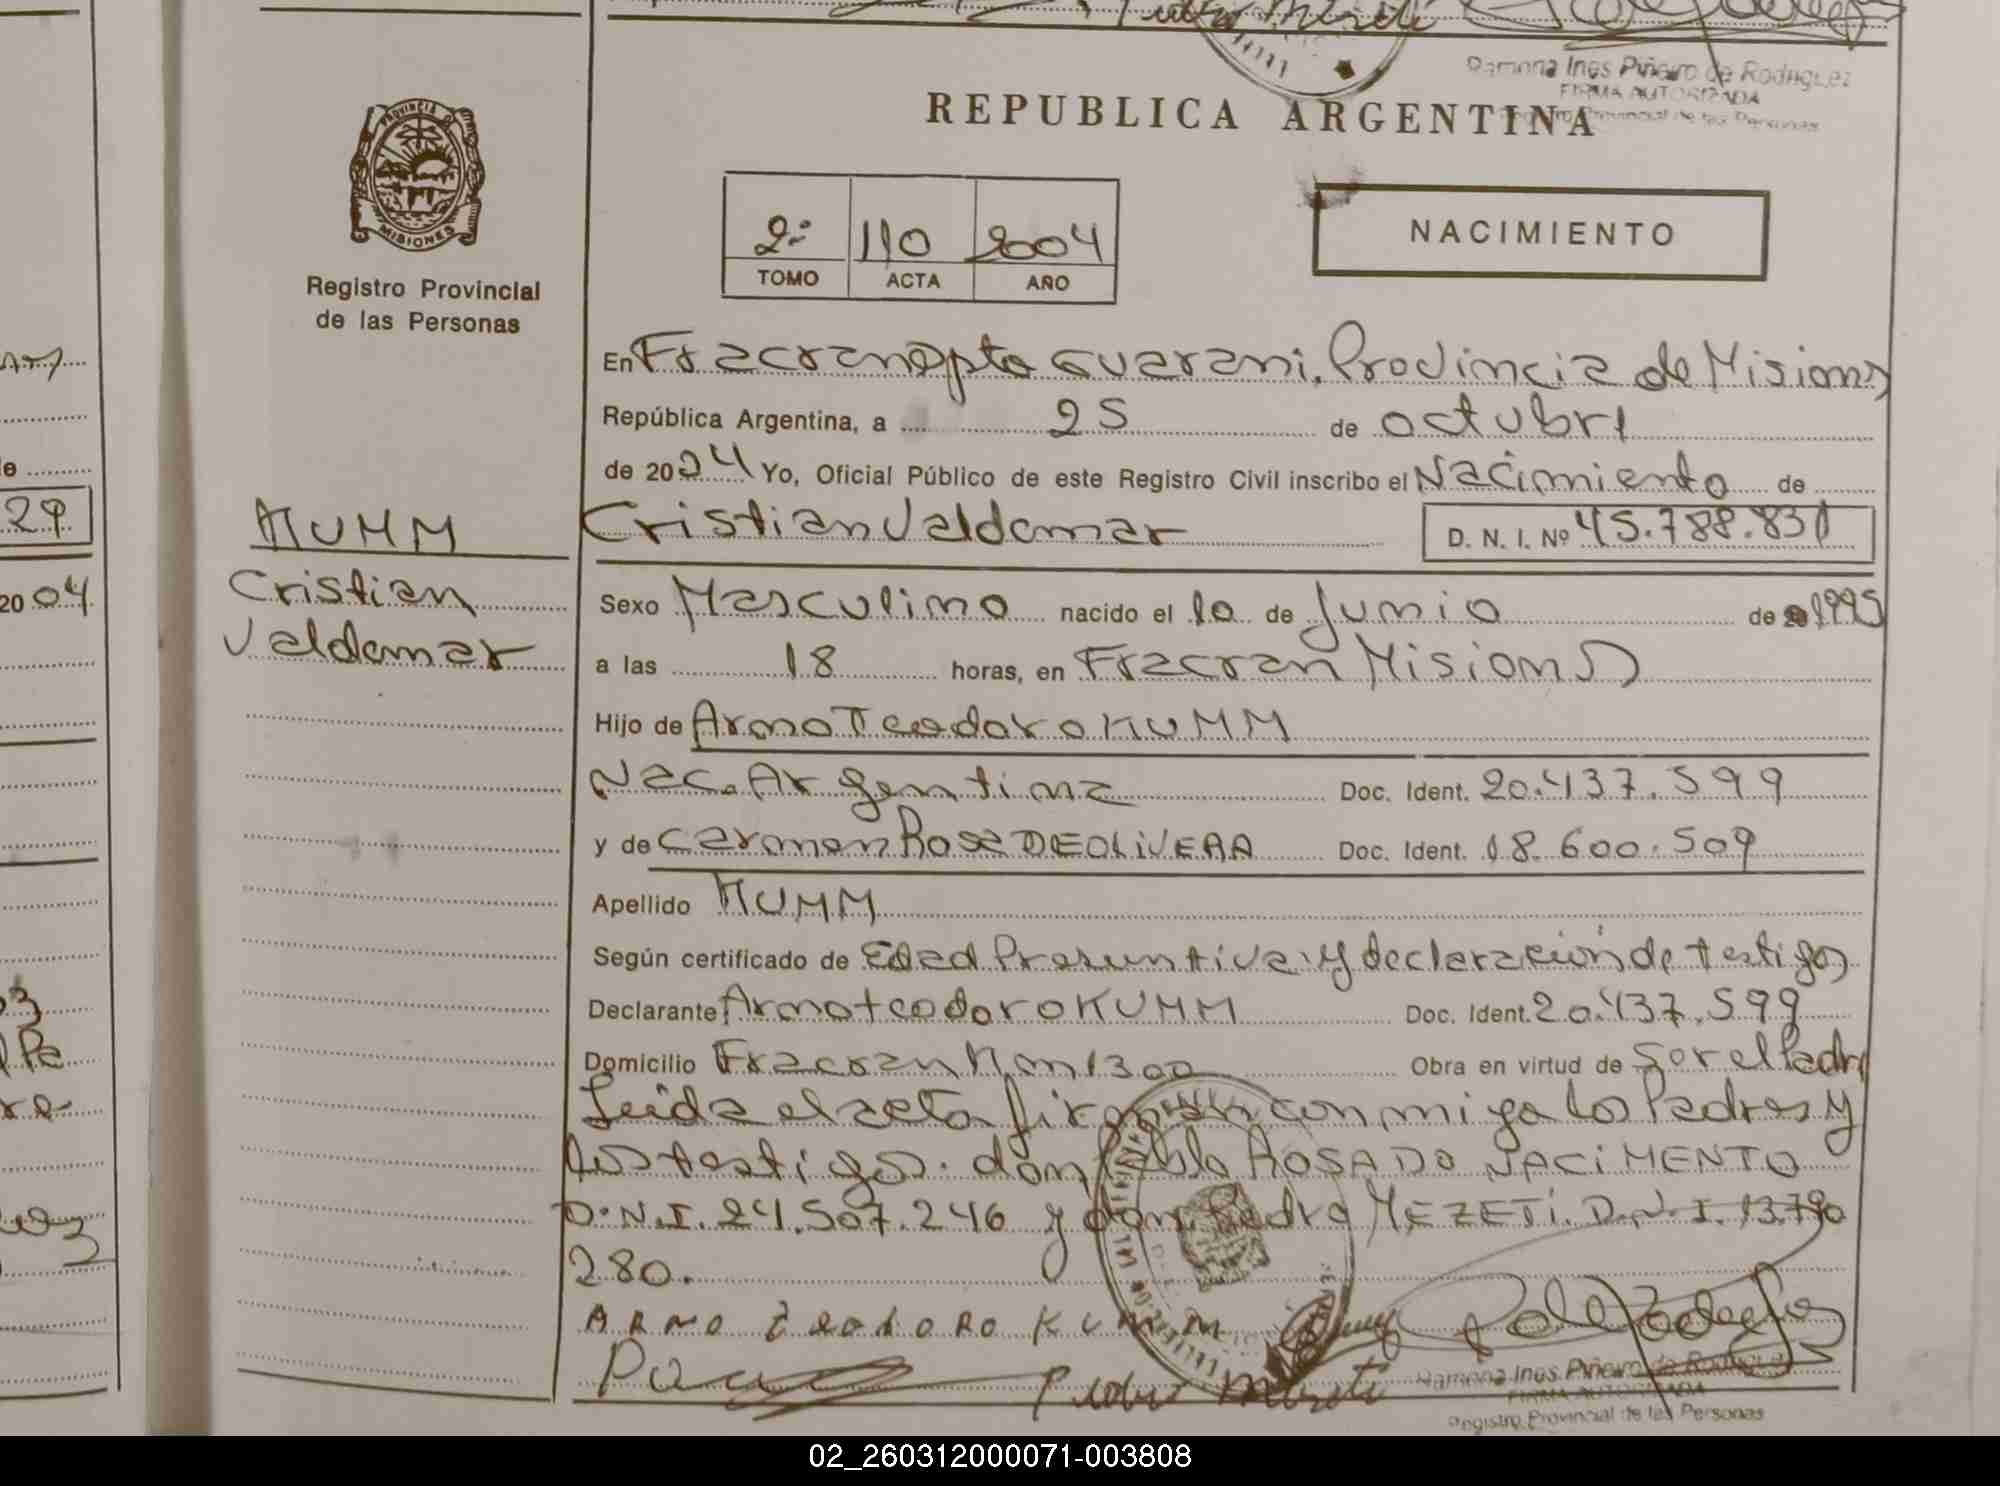 Ramona Ines Piñeiro de Rodriguez
FIRMA AUTORIZADA
Registro Provincial de las Personas
REPUBLICA ARGENTINA
PROVINCIA D
MISIONES
Registro Provincial
de las Personas
2º 110 2004
TOMO ACTA AÑO
NACIMIENTO
En Fracran Dpto Guarani. Provincia de Misiones
República Argentina, a 25 de octubre
de 2004 Yo, Oficial Público de este Registro Civil inscribo el Nacimiento de
29
KUMM
Cristian Valdemar D. N. I. Nº 45.788.831
20 04
Cristian
Valdemar
Sexo Masculino nacido el 10 de Junio de 1995
a las 18 horas, en Fracran Misiones
Hijo de Arno Teodoro KUMM
Nac. Argentina Doc. Ident. 20.437.599
y de Carmen Rosa DE OLIVERA Doc. Ident. 18.600.509
Apellido KUMM
Según certificado de Edad Presuntiva y declaración de testigos
Declarante Arno teodoro KUMM Doc. Ident. 20.437.599
Domicilio Fracran Km 1300 Obra en virtud de Ser el Padre
Leida el acta firman conmigo los Padres y
los testigos. don Pablo ROSADO NACIMENTO
D.N.I. 24.507.246 y don Pedro MEZETI. D.N.I. 13.790
280.
ARNO TEODORO KUMM
Pedro Mezeti
Ramona Ines Piñeiro de Rodriguez
FIRMA AUTORIZADA
Registro Provincial de las Personas
02_260312000071-003808